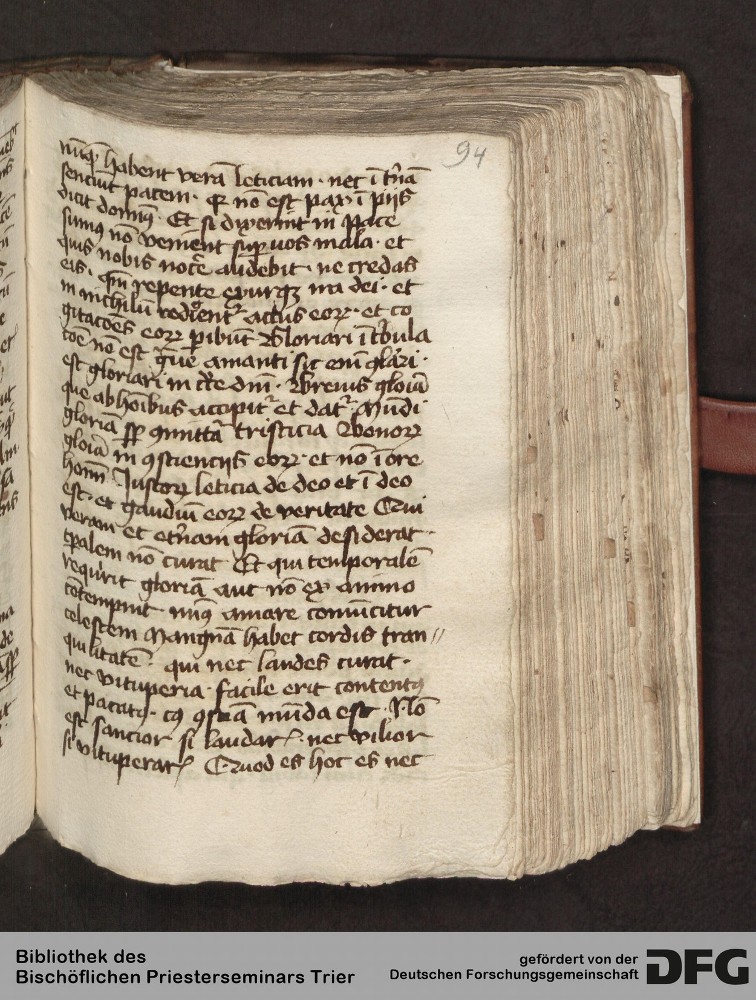 94
nūq̄ habent verā leticiam · nec ī t̄nā
senciūt pacem · q̄ nō est pax ī piis
dicit domin9 · Et si dixerint in pace
sumus nō venient sup vos mala · et
quis nobis nocē audebit · ne credas
eis · qm̄ repente exurgz ira dei · et
in nichilū redigentr actus eorꝝ · et co
gitacōes eorꝝ peribūt Gloriari ī t̄bula
cōe nō est gue amanti sic em̄ glāri ·
est gloriari in cͬce dn̄i · Brevis gloīa
que ab hoībus accipitr et datr Mūdi
gloriā sp̄ 9mittā tristicia Bonorꝝ
gloīa in 9sciencijs eorꝝ · et nō ī ore
homī Justorꝝ leticia de deo et ī deo
est · et gaudiū eorꝝ de veritate Qui
veram et et̄nam gloriā desiderat ·
tp̄alem nō curat Et qui temporalē
requirit gloriā aut nō ex animo
cōtempnit min9 amare convīcitur
celestem Mangnā habet cordis tran //
quilitatē · qui nec laudes curat ·
nec vituperia · facile erit content9
et pacat9 · c9 9sciā mūda est · Nō
est sanctior si laudarͭ · nec vilior
si vituperatͬ Quod es hoc es nec
Bibliothek des
Bischöflichen Priesterseminars Trier
gefördert von der
Deutschen Forschungsgemeinschaft
DFG